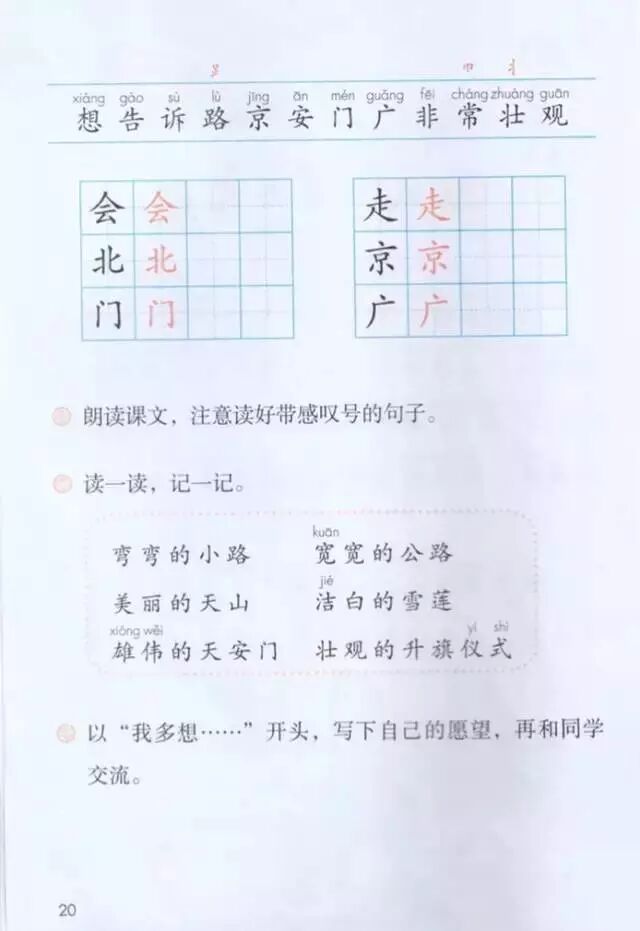 ⻊ 巾 丬
xiǎng gào sù lù jīng ān mén guǎng fēi cháng zhuàng guān
想 告 诉 路 京 安 门 广 非 常 壮 观
会 会 走 走
北 北 京 京
门 门 广 广
朗读课文，注意读好带感叹号的句子。
读一读，记一记。
kuān
弯弯的小路 宽宽的公路
jié
美丽的天山 洁白的雪莲
xióng wěi yí shì
雄伟的天安门 壮观的升旗仪式
以“我多想……”开头，写下自己的愿望，再和同学
交流。
20